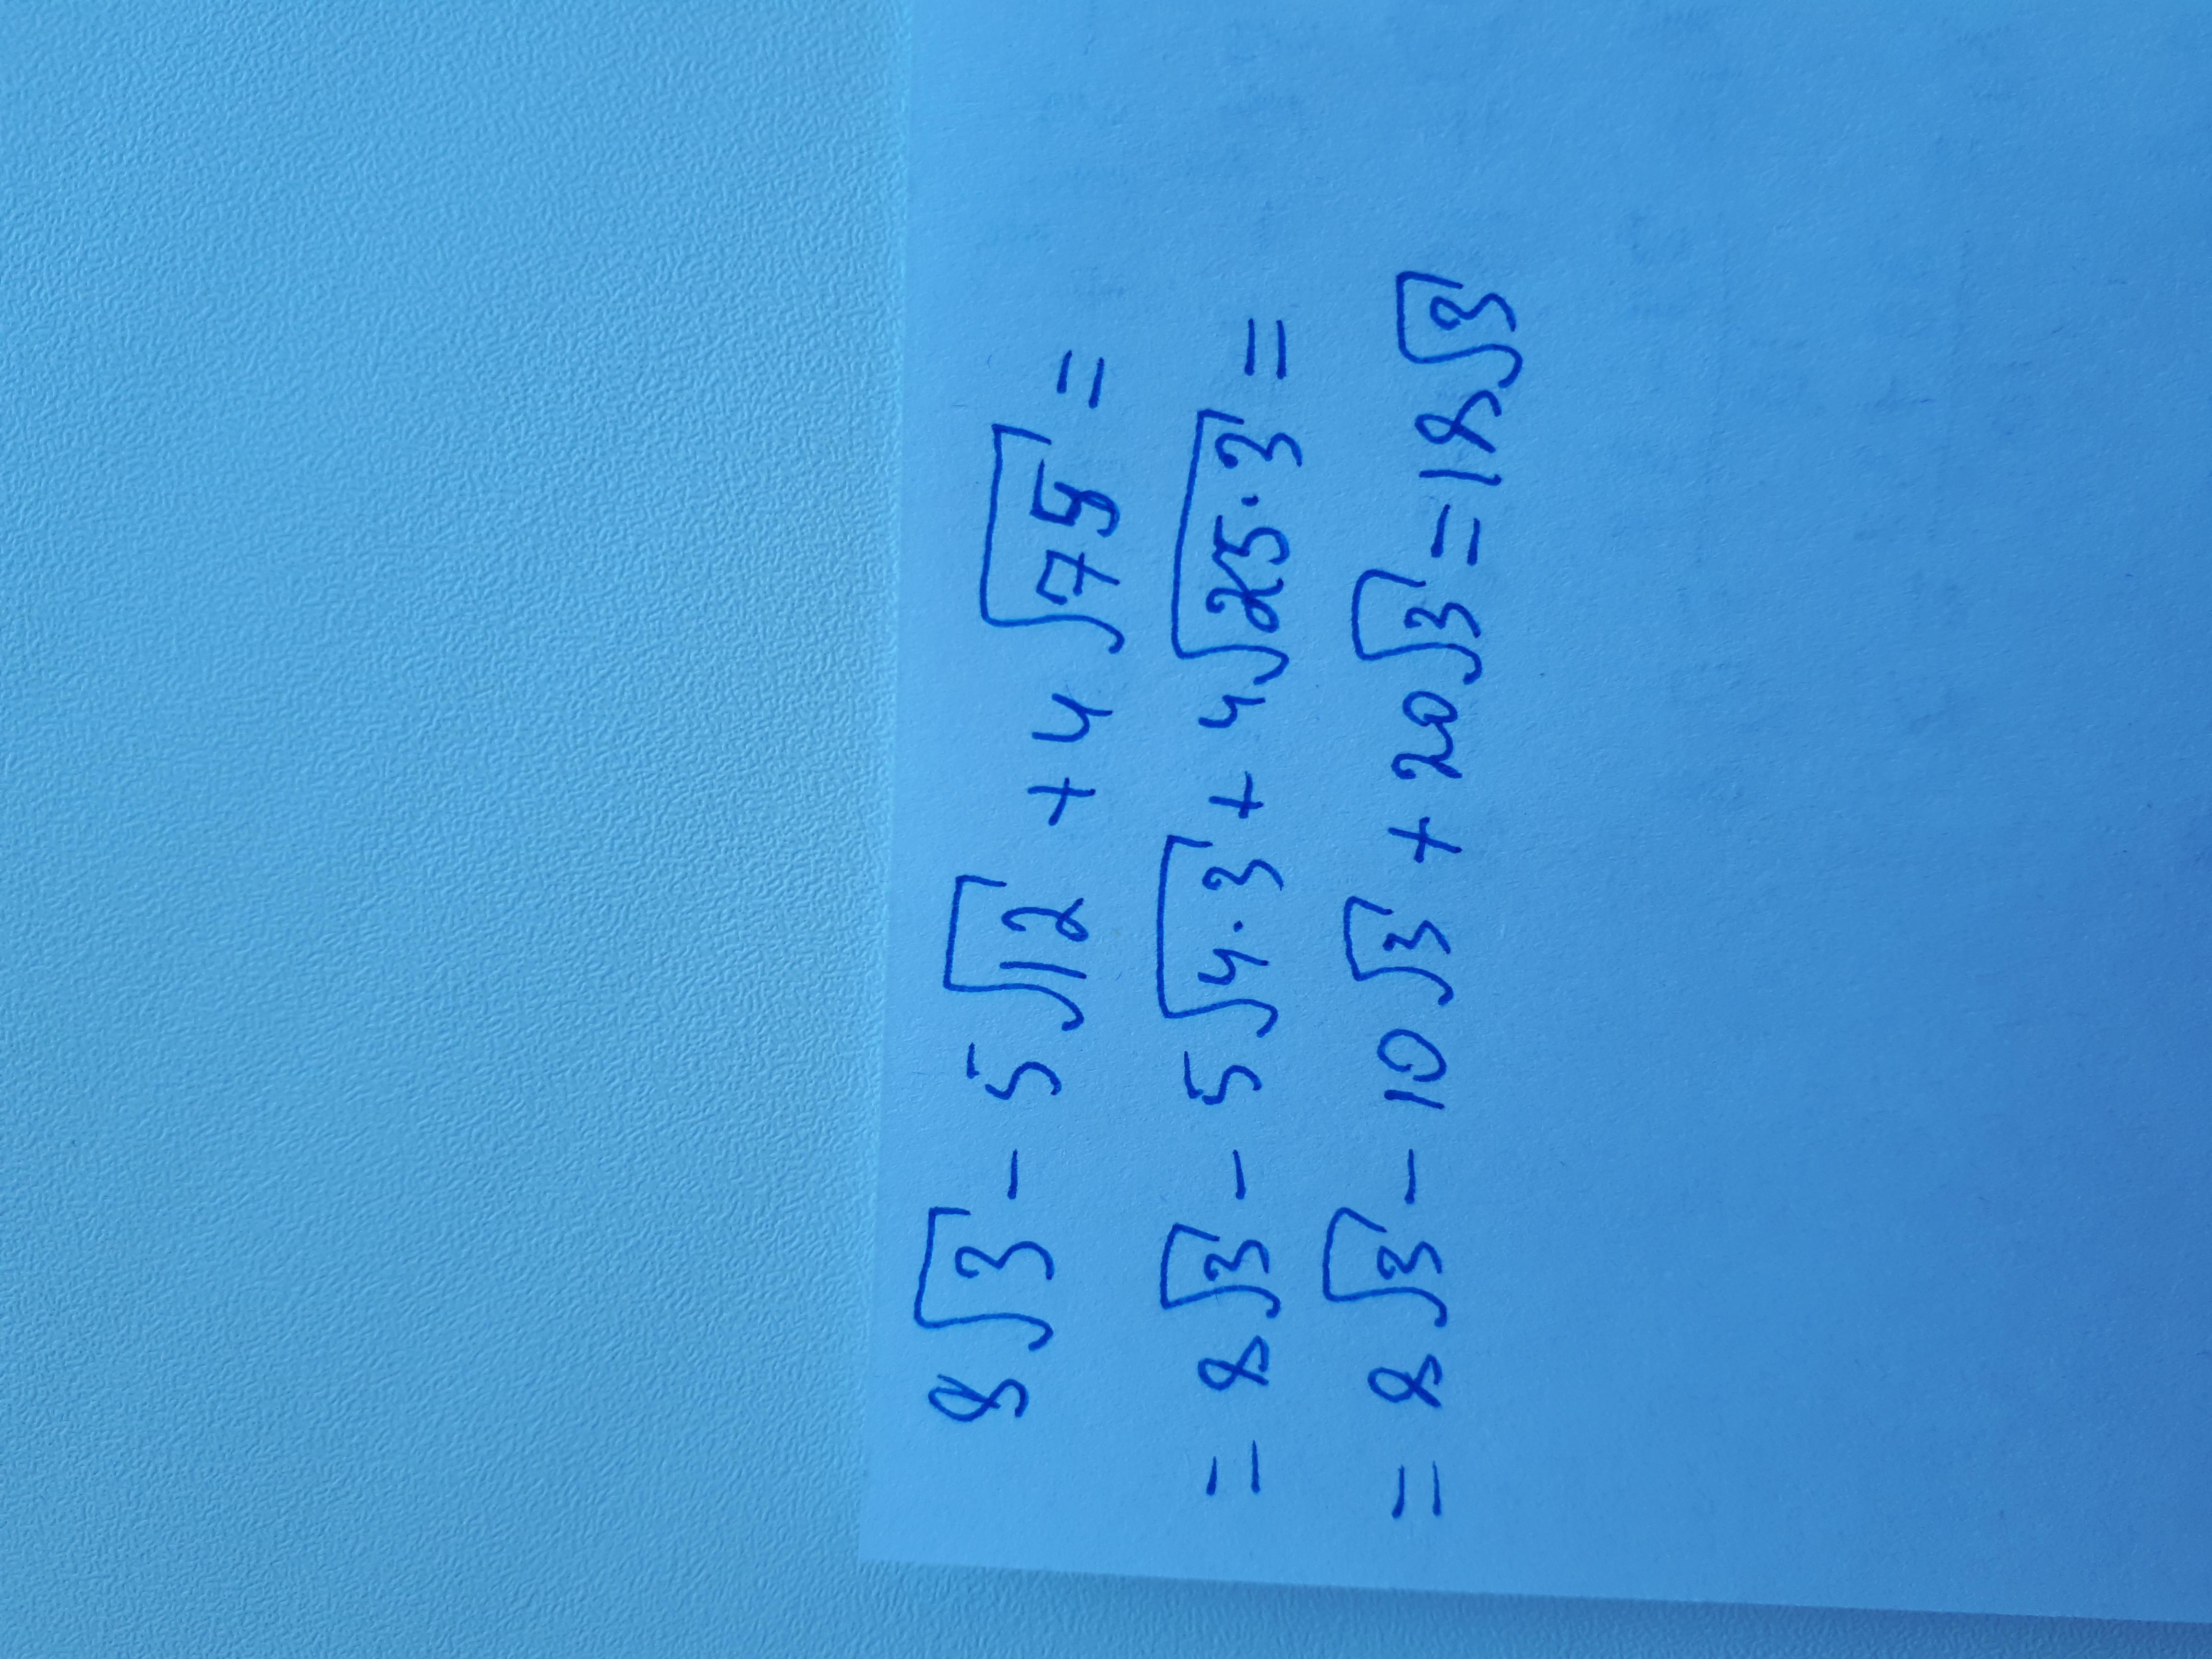 8√3 - 5√12 + 4√75 =
= 8√3 - 5√4·3 + 4√25·3 =
= 8√3 - 10√3 + 20√3 = 18√3